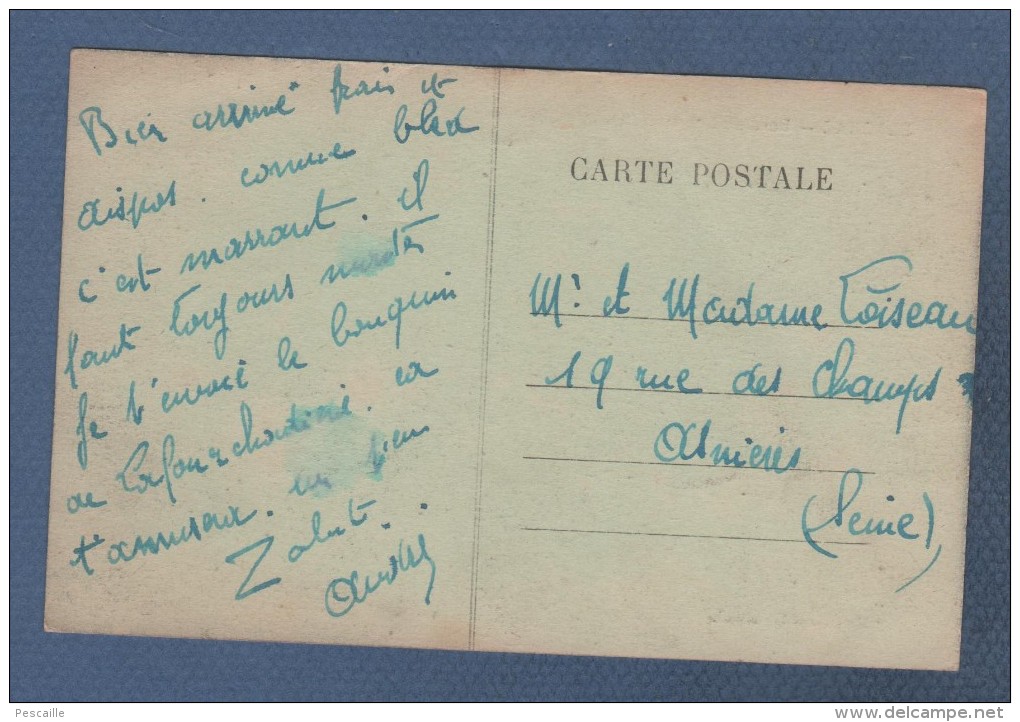 Bien arrivé frais et
dispos. comme bled
c'est marrant. il
faut toujours
Je t'envoie le bouquin
de Lafourchardière. ça
t'amusera. un bien
Zalut..
André
CARTE POSTALE
Mr et Madame Loiseau
19 rue des Champs
Asnières
(Seine)
Pescaille
www.delcampe.net